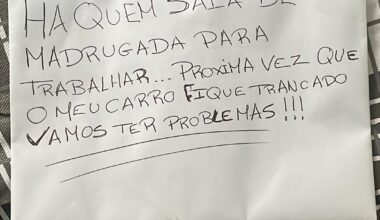 HA QUEM SAIA DE
MADRUGADA PARA
TRABALHAR... PROXIMA VEZ QUE
O MEU CARRO FIQUE TRANCADO
VAMOS TER PROBLEMAS!!!